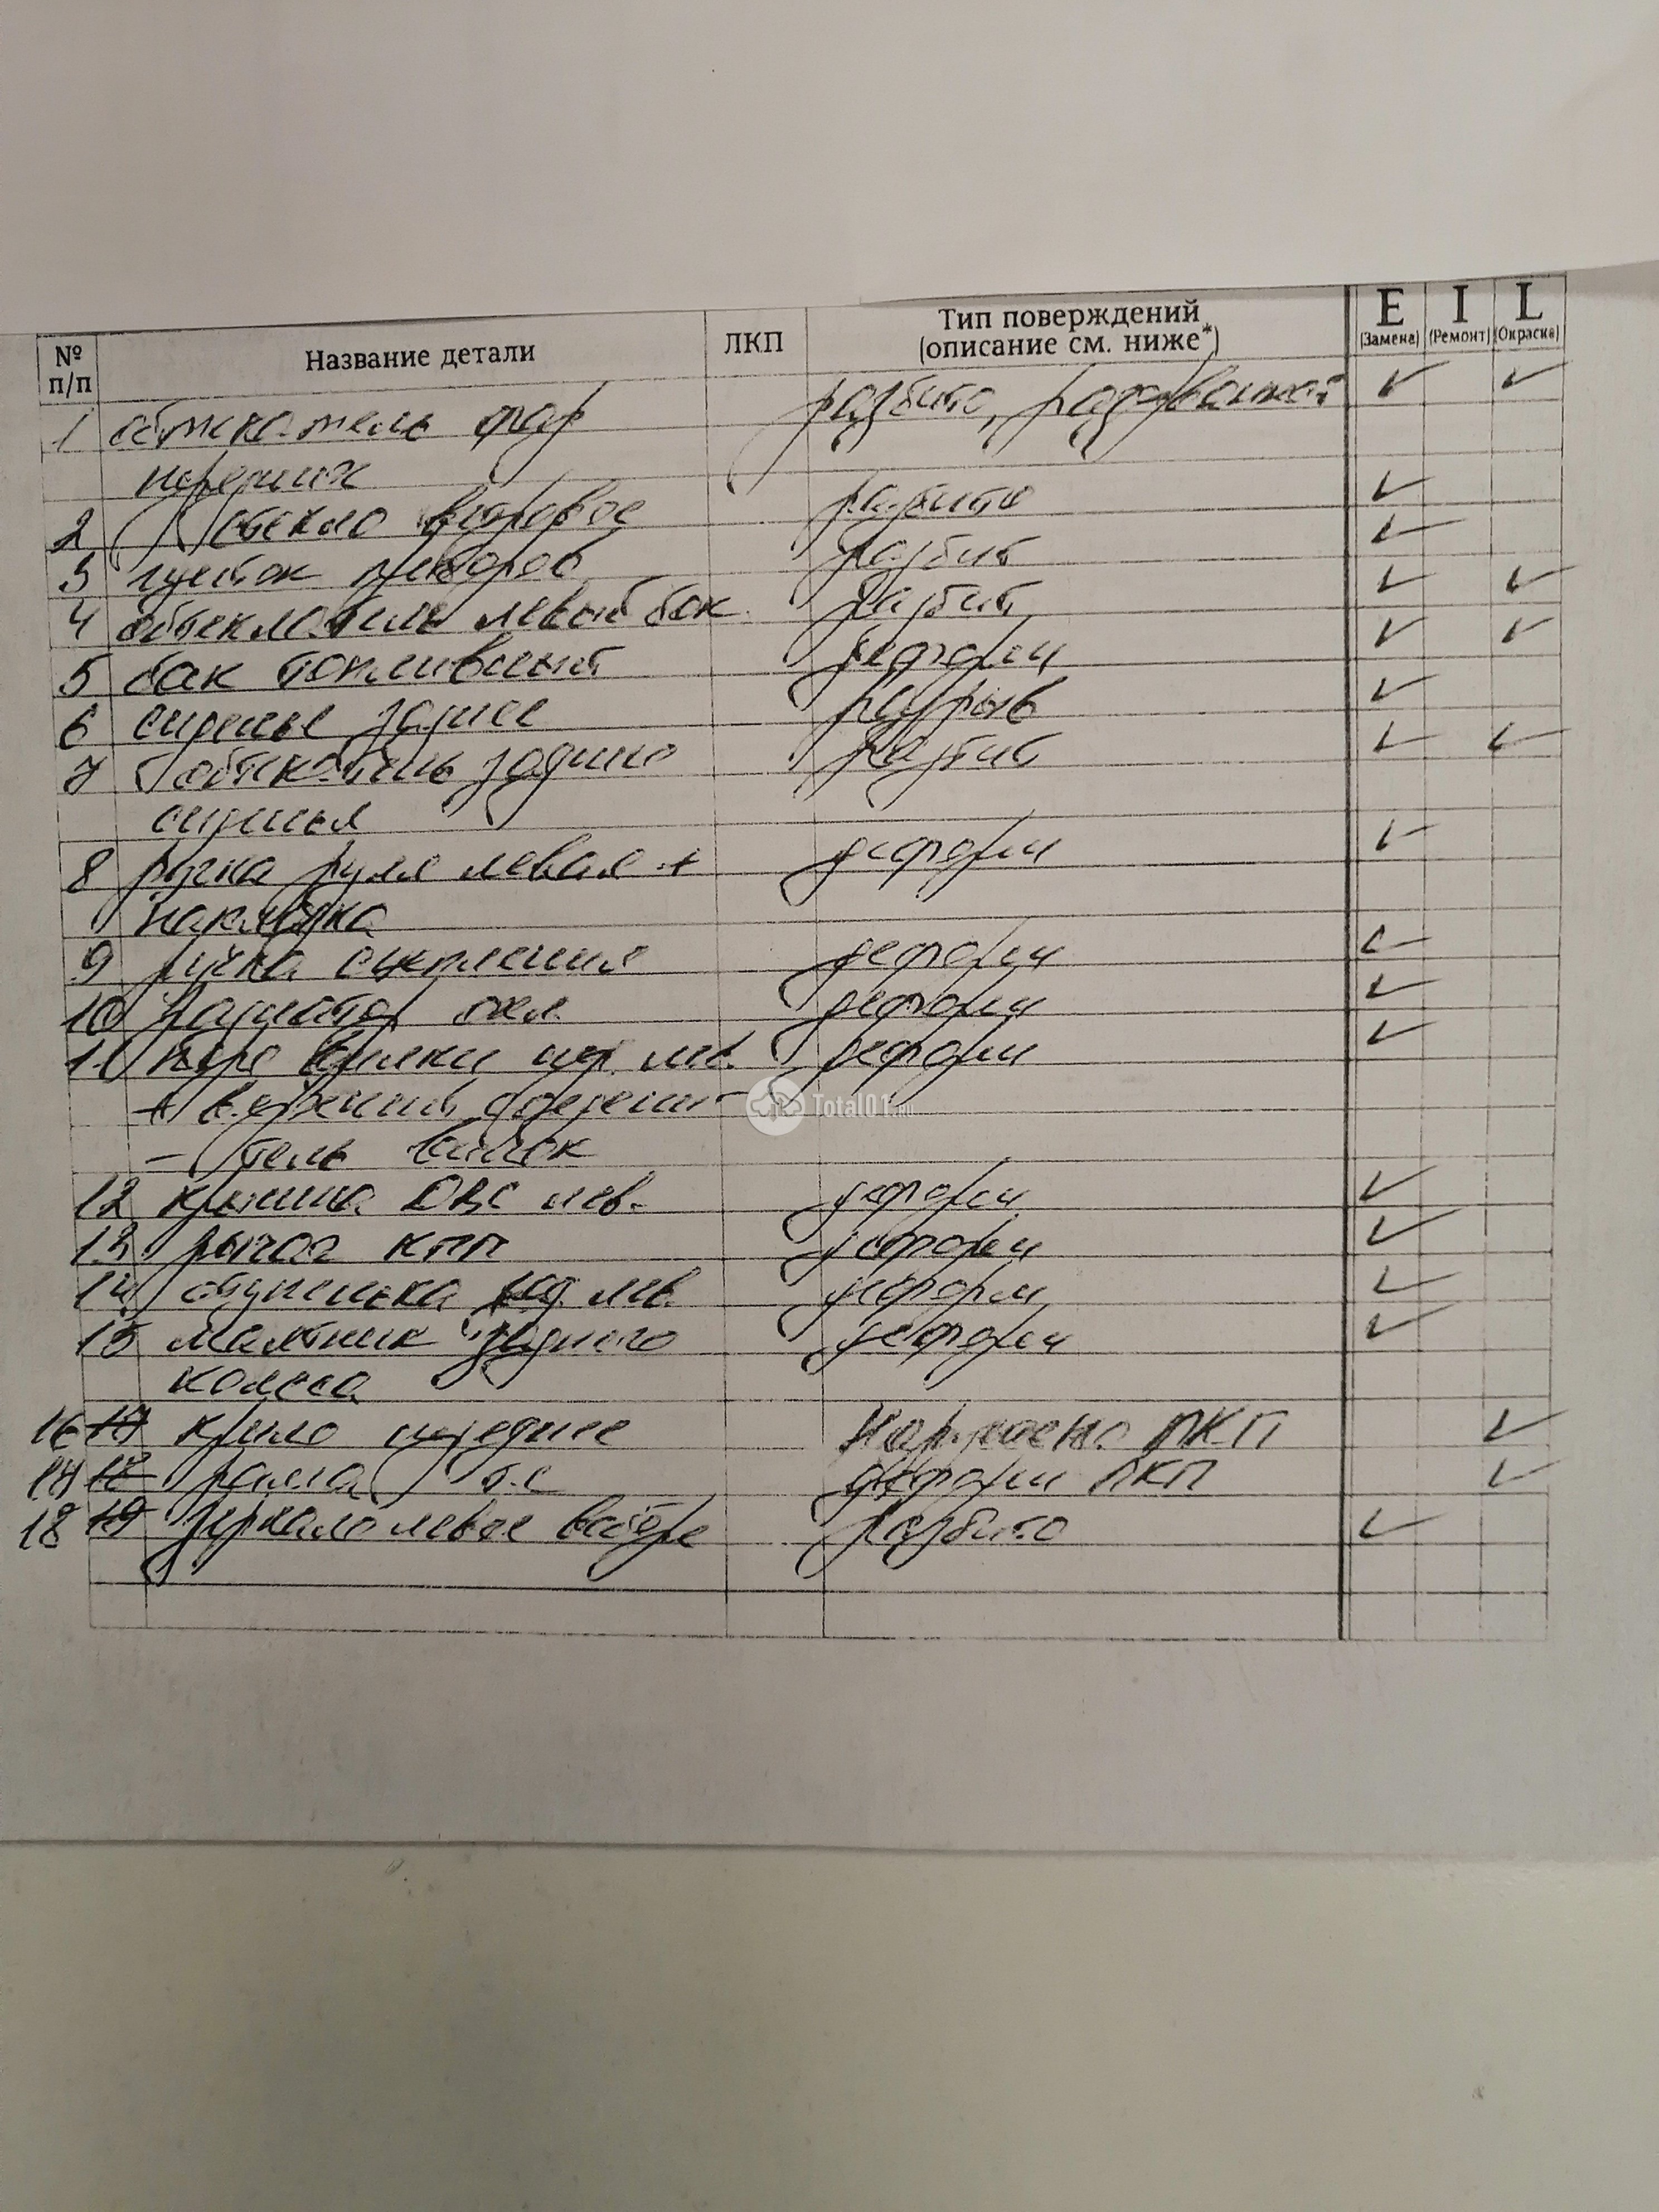 № п/п Название детали ЛКП Тип поверждений (описание см. ниже*) E (Замена) I (Ремонт) L (Окраска)
1 обтекатель фар разбито,
передних
2 стекло ветровое разбито
3 щиток приборов разбит
4 обтекатель левый бок. разбит
5 бак топливный деформ
6 сиденье заднее разрыв
7 обтекатель заднего разбит
сиденья
8 ручка руля левая + деформ
накладка
9 ручка сцепления деформ
10 радиатор охл. деформ
11 перо вилки пер. лев. деформ
+ верхний соедини-
- тель вилок
12 крышка ДВС лев. деформ
13 рычаг КПП деформ
14 ступенька лев. деформ
15 маятник заднего деформ
колеса
16 17 крыло переднее нарушено ЛКП
17 18 рама т.с деформ ЛКП
18 19 зеркало левое в сборе разбито
Total01.ru